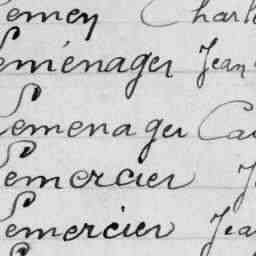 Lemery Charl
Leménager Jean
Lemenager Ca
Lemercier J
Lemercier Jea